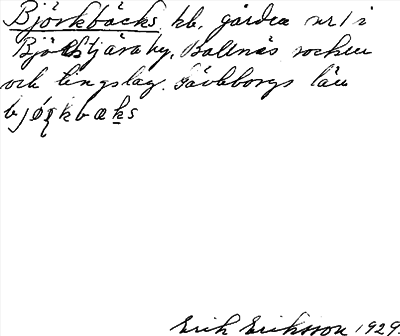 Björkbäcks, hb. gården nr 1 i
Björstjära by, Bollnäs socken
och tingslag. Gävleborgs län
bjørkbæks
Erik Eriksson 1929.